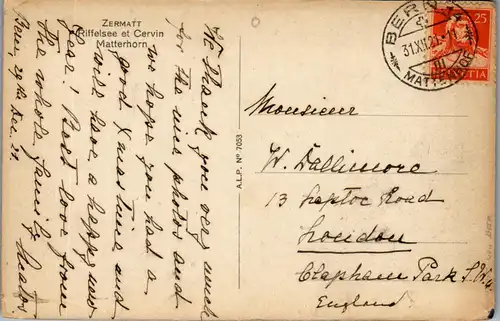 ZERMATT
Riffelsee et Cervin
Matterhorn
Bern, 29th Dec. 21.
We thank you very much
for the nice photos and
we hope you had a
good Xmastime and
will have a happy new
Year! Best love from
the whole family
A.L.P. No 7053
BERN
31.XII.21
MATTENHOF
25
HELVETIA
Monsieur
W. Dallimore
13 Road
London
Clapham Park S.W.4
England